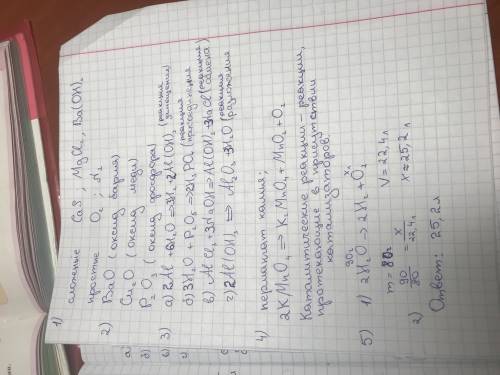 1) сложные CaS ; MgCl₂ ; Ba(OH)₂
простые O₂ ; N₂
2) а) BaO (оксид бария)
б) Cu₂O (оксид меди)
в) P₂O₃ (оксид фосфора)
3) а) 2Al + 6H₂O => 3H₂ + 2Al(OH)₃ (реакция замещения)
б) 3H₂O + P₂O₅ => 2H₃PO₄ (реакция присоединения)
в) AlCl₃ + 3NaOH => Al(OH)₃ + 3NaCl (реакция обмена)
г) 2Al(OH)₃ <=> Al₂O₃ + 3H₂O (реакция разложения)
4) перманганат калия;
2KMnO₄ => K₂MnO₄ + MnO₂ + O₂
Каталитические реакции – реакции,
протекающие в присутствии
катализаторов
5) 1) 2H₂O => 2H₂ + O₂
90г
x л
m = 80г V = 22,4 л
2) 90/80 = x/22,4 x = 25,2 л
Ответ: 25,2 л